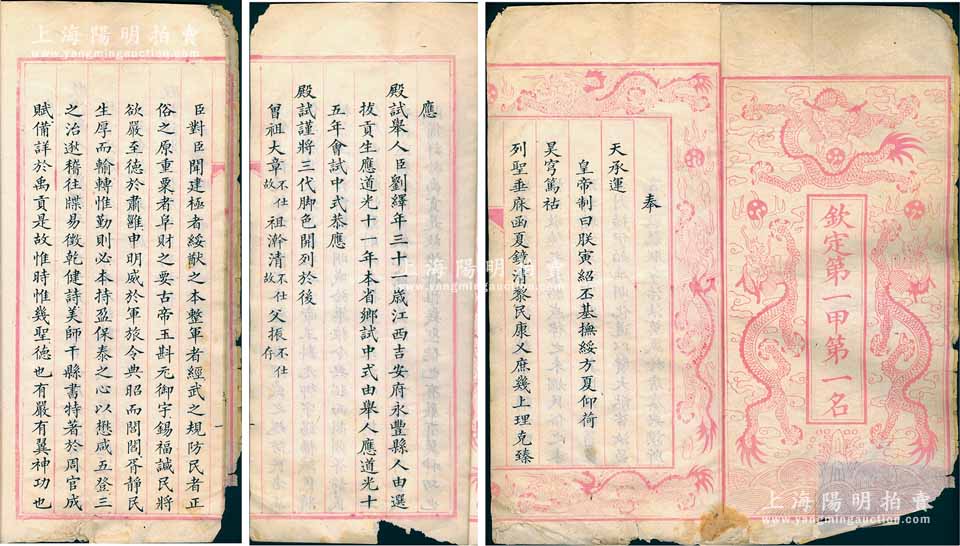 欽定第一甲第一名
奉
天承運
皇帝制曰朕寅紹丕基撫綏方夏仰荷
昊穹篤祜
列聖垂庥函夏鏡清黎民康乂庶幾上理克臻
應
殿試舉人臣劉繹年三十一歲江西吉安府永豐縣人由選
拔貢生應道光十一年本省鄉試中式由舉人應道光十
五年會試中式恭應
殿試謹將三代脚色開列於後
曾祖大章不仕故 祖澣清不仕故 父振不仕存
臣對臣聞建極者綏猷之本整軍者經武之規防民者正
俗之原重粟者阜財之要古帝王斟元御宇錫福諴民將
欲嚴至德於肅雝申明威於軍旅令典昭而閭閻胥靜民
生厚而輸轉惟勤則必本持盈保泰之心以懋咸五登三
之治逖稽往牒易徵乾健詩美師干縣書特著於周官成
賦備詳於禹貢是故惟時惟幾聖德也有嚴有翼神功也
上海陽明拍賣
www.yangmingauction.com
上海陽明拍賣
www.yangmingauction.com
上海陽明拍賣
www.yangmingauction.com